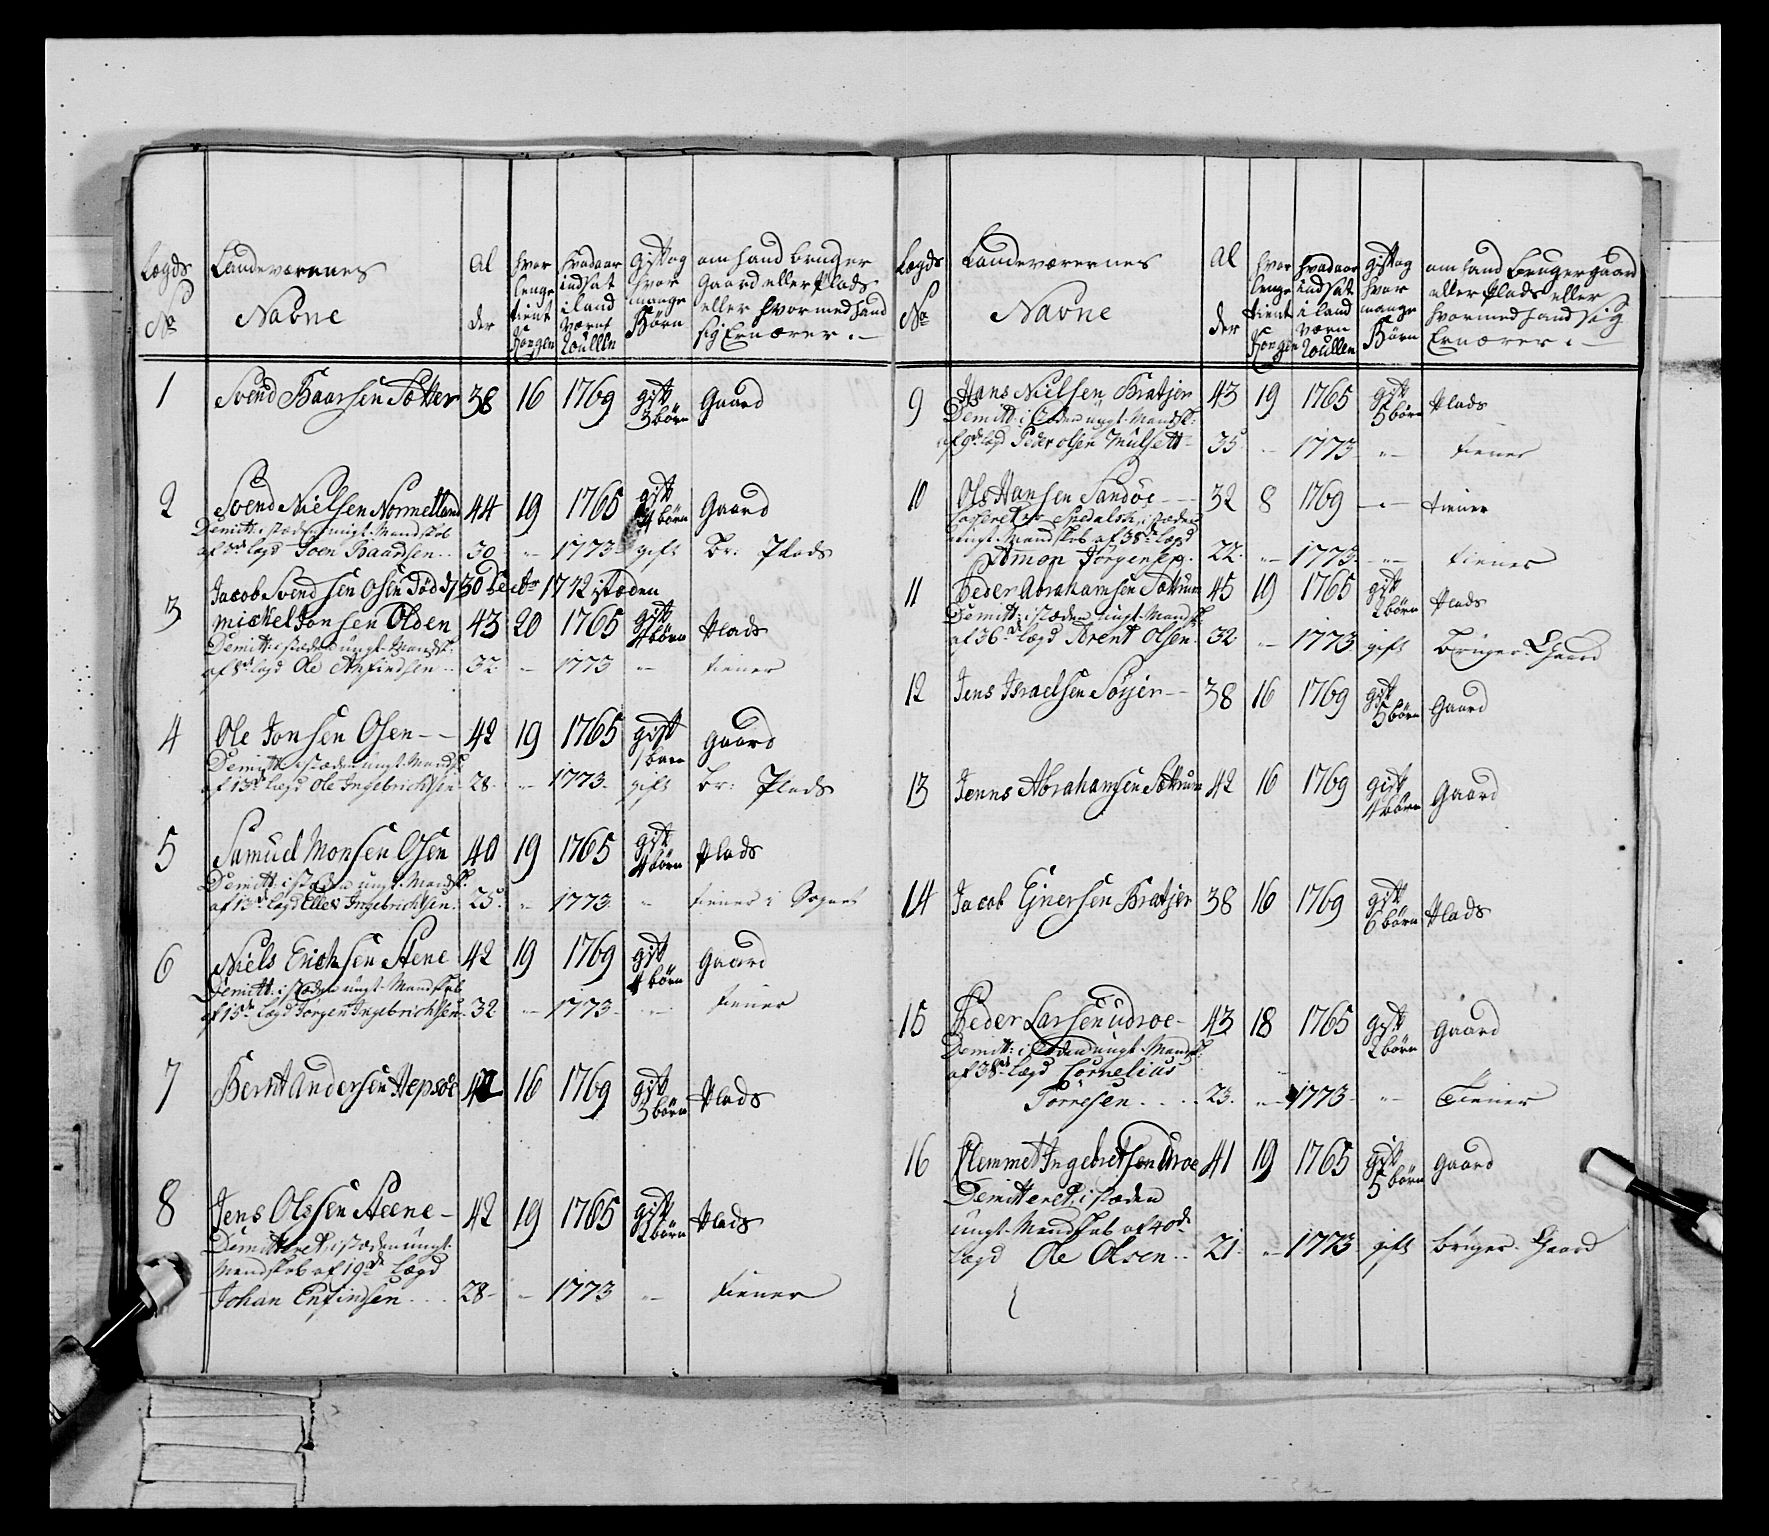 Lægds No
Landeværernes Navne
Al der
hvor lenge tient Kongen
hvad aar indsat i land værns Roullen
Gift og hvor mange Børn
om hand bruger Gaard eller Plads eller hvormed hand sig Ernærer :
1 Svend Baarsen Sætter 38 16 1769 gift 3 børn Gaard
2 Svend Nielsen Normelland 44 19 1765 gift 4 børn Gaard
Demitt: i stæden ungt Mandskab
af 3de lægd Joen Baardsen .. 30 " 1773 gift Br: Plads
Jacob Svendsen Osen Død d 30 Decbr 1742 i stæden
3 Mickel Jonsen Olden 43 20 1765 gift 4 børn Plads
Demitt: i stæden ungt Mandsk:
af 8de lægd Ole Arfindsen .. 32 " 1773 " tiener
4 Ole Jonsen Osen - - 42 19 1765 gift 1 barn gaard
Demitt: i stæden ungt Mandsk:
af 13de Lægd Ole Ingebrichtsen 28 " 1773 gift br: Plads
5 Samuel Monsen Osen 40 19 1765 gift 4 børn Plads
Demitt: i stæden ungt Mandsk:
af 13de lægd Elles Ingebrichtsen 25 " 1773 " tiener i Sognet
6 Niels Erichsen Stene 42 19 1769 gift 4 børn Gaard
Demitt: i stæden ungt Mandskab
af 15de Lægd Jørgen Ingebrichtsen 32 " 1773 " tiener
7 Bernt Andersen Hepsøe 42 16 1769 gift 3 børn Plads
8 Jens Olssen Steene - 42 19 1765 gift 2 børn Plads
Demitteret i stæden ungt
Mandskab af 19de Lægd
Johan Enfinsen ... 28 - " 1773 " tiener
Lægds No
Landeværernes Navne
Al der
hvor lenge tient Kongen
hvad aar indsat i land værn Roullen
gift og hvor mange Børn
om hand Bruger gaard eller Plads eller hvormed hand sig Ernærer :
9 Hans Nielsen Bratjer 43 19 1765 gift 5 børn Plads
Demitt: i stæden ungt Mandsk:
af 9de lægd Peder Olsen Mulsett 35 " 1773 " tiener
10 Ole Hansen Sandøe - - 32 8 1769 " tiener
Casseret for Spedalsk, i stæden
ungt Mandskab af 38de Lægd
Amon Jørgensen . 22 " 1773 " tiener
11 Peder Abrahamsen Sættrum 45 19 1765 gift 2 børn Plads
Demitt: i stæden ungt Mandsk:
af 36de Lægd Brent Olsen . 32 " 1773 gift bruger Gaard
12 Jens Israelsen Sørjer - 38 16 1769 gift 5 børn Gaard
13 Jenns Abrahamsen Sættrum 42 16 1769 gift 4 børn Gaard
14 Jacob Ejnersen Bratjer 38 16 1769 gift 6 børn Plads
15 Peder Larsen Udroe - 43 18 1765 gift 2 børn Gaard
Demitt: i stæden ungt Mandsk:
af 38de Lægd Cornelius
Torresen .... 23 " 1773 " Tiener
16 Klemmet Ingebretsen Udroe 41 19 1765 gift 5 børn Gaard
Demitteret i stæden
ungt Mandskab af 40de
Lægd Ole Olsen .. 21 " 1773 gift bruger Gaard